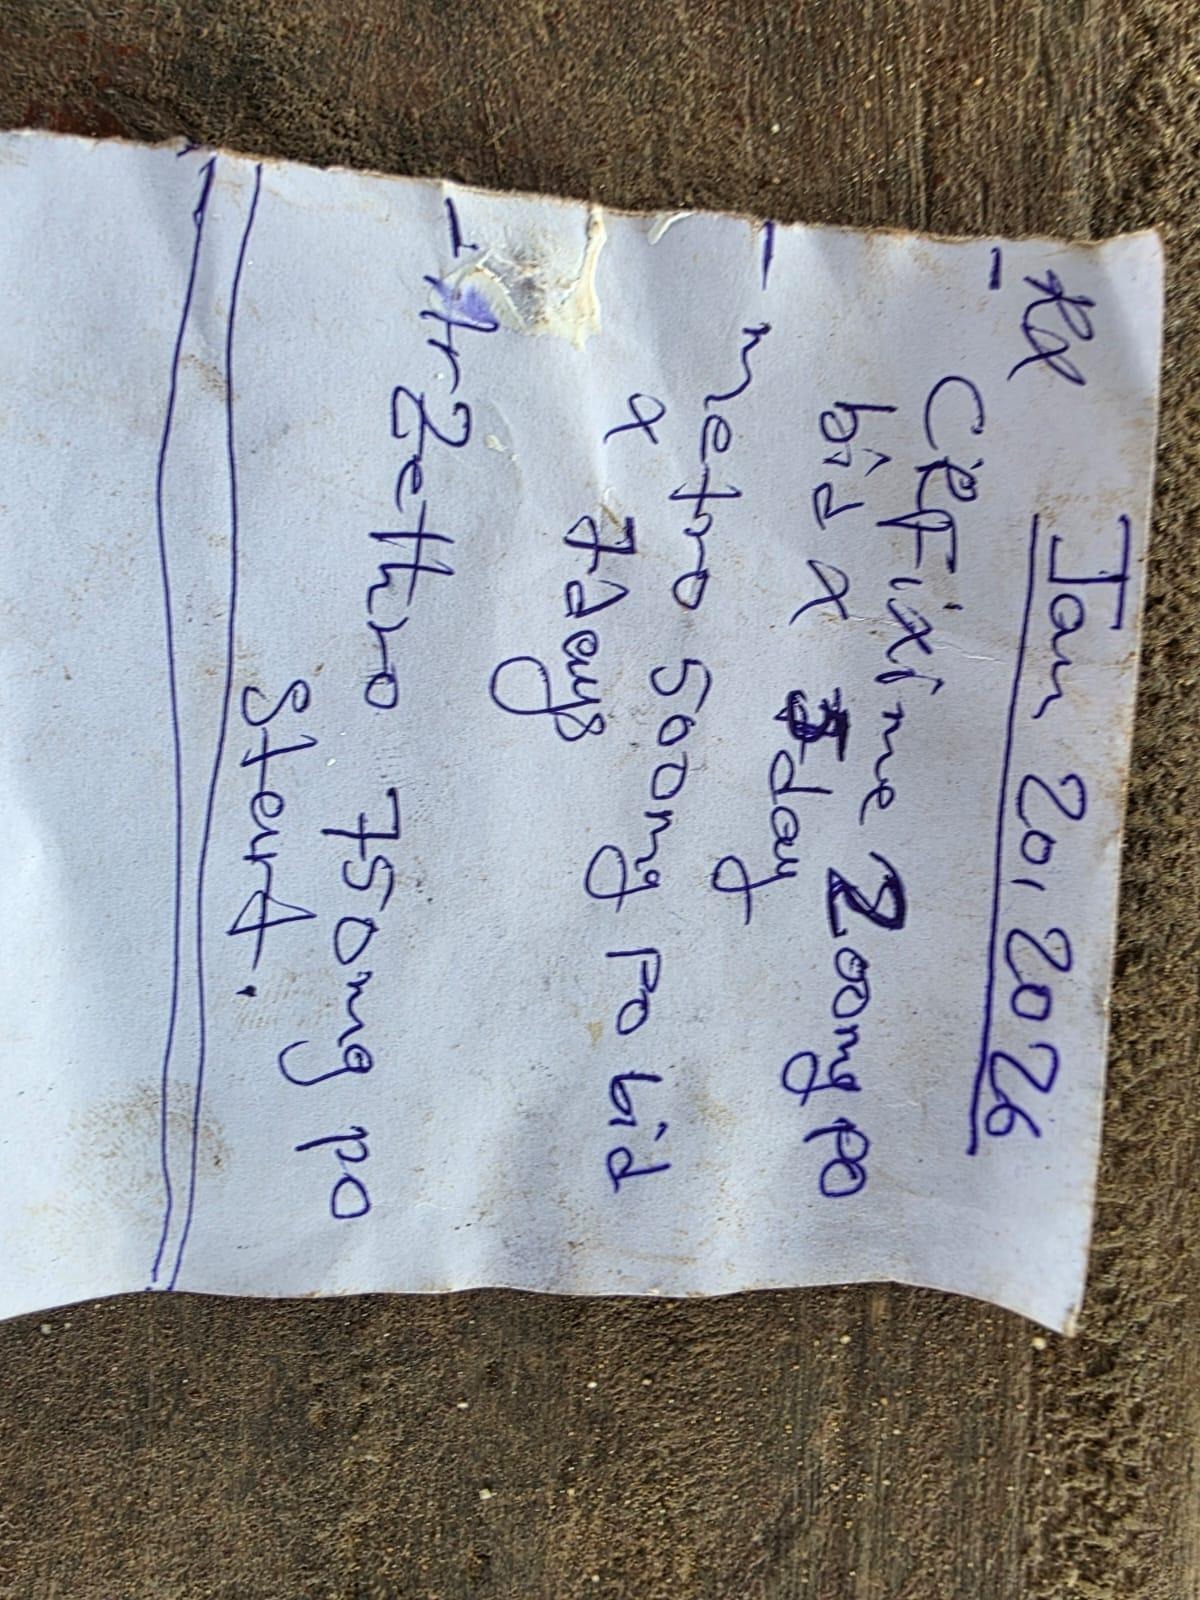 Jan 20, 2026
Rx
- Cefixime 200mg po
bid x 5 day
- metro 500mg po bid
x 7 days
- Azethro 750mg po
Start.